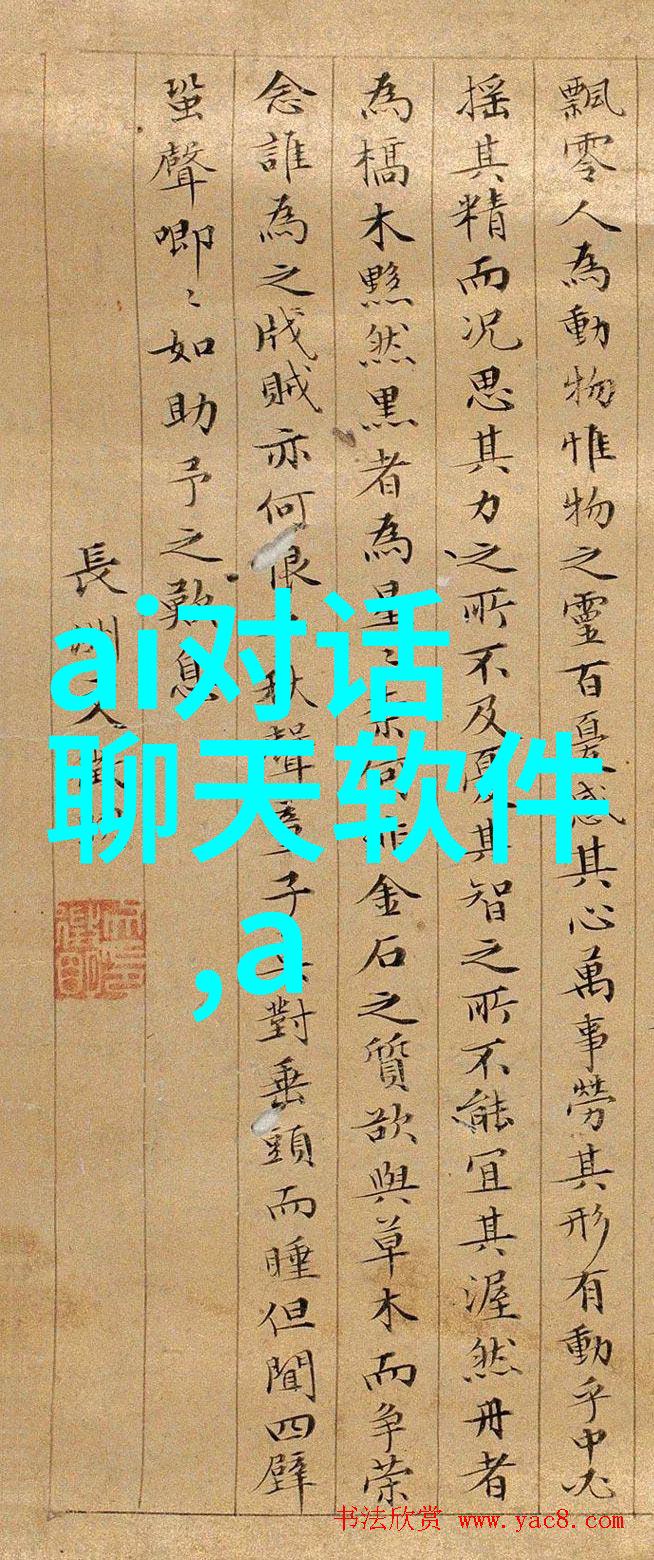 飄零人為動物惟物之靈百憂感其心萬事勞其形有動乎中必
搖其精而况思其力之所不及憂其智之所不能宜其渥然丹者
為槁木黟然黒者為星〻奈何非金石之質欲與草木而争荣
念誰為之戕賊亦何恨乎秋聲童子莫對垂頭而睡但聞四壁
蛩聲唧〻如助予之歎息
長洲文徵明
ai对话
聊天软件
,a
书法欣赏 www.yac8.com